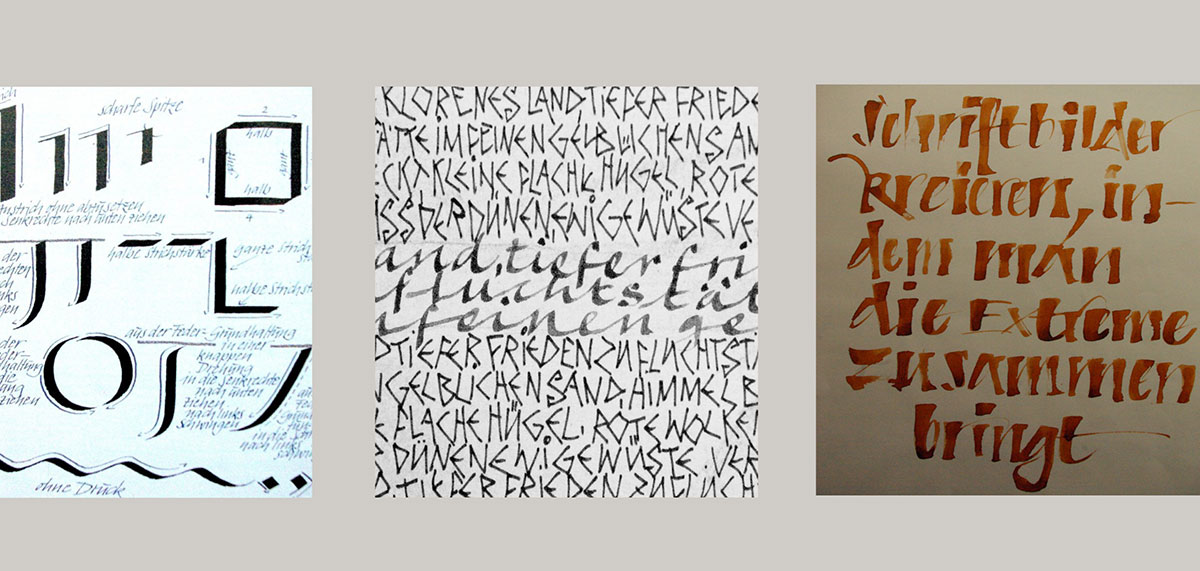 scharfe Spitze
2
halb
halb
4
strich ohne abzusetzen
Senkrechte nach unten ziehen
halbe strichstärke
ganze strich
halbe strichst
aus der Feder-Grundhaltung
in einer
knappen
Drehung
in die Senkrechte
nach unten
ziehen
nach links
schwingen
ohne Druck
KLORENES LAND TIEFER FRIEDE
ÄTTE IM FEINEN GELBLICHEN SAN
CKT KLEINE FLACHE HÜGEL, ROTE
SS DER DÜNEN EWIGE WÜSTE VE
and, tiefer fri
fluchtstät
feinen ge
TIEFER FRIEDEN ZUFLUCHTSTÄ
GELBLICHEN SAND, HIMMEL B
E FLACHE HÜGEL, ROTE WOLKE
DÜNEN EWIGE WÜSTE. VER
D, TIEFER FRIEDEN ZUFLUCH
Schriftbilder
kreieren, in-
dem man
die Extreme
zusammen
bringt